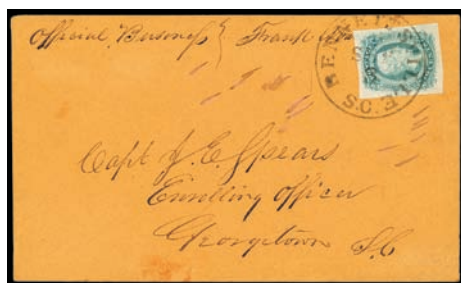 Official Business } Frank
BENNETTSVILLE S.C.
Capt J. E. Spears
Enrolling Officer
Georgetown S.C